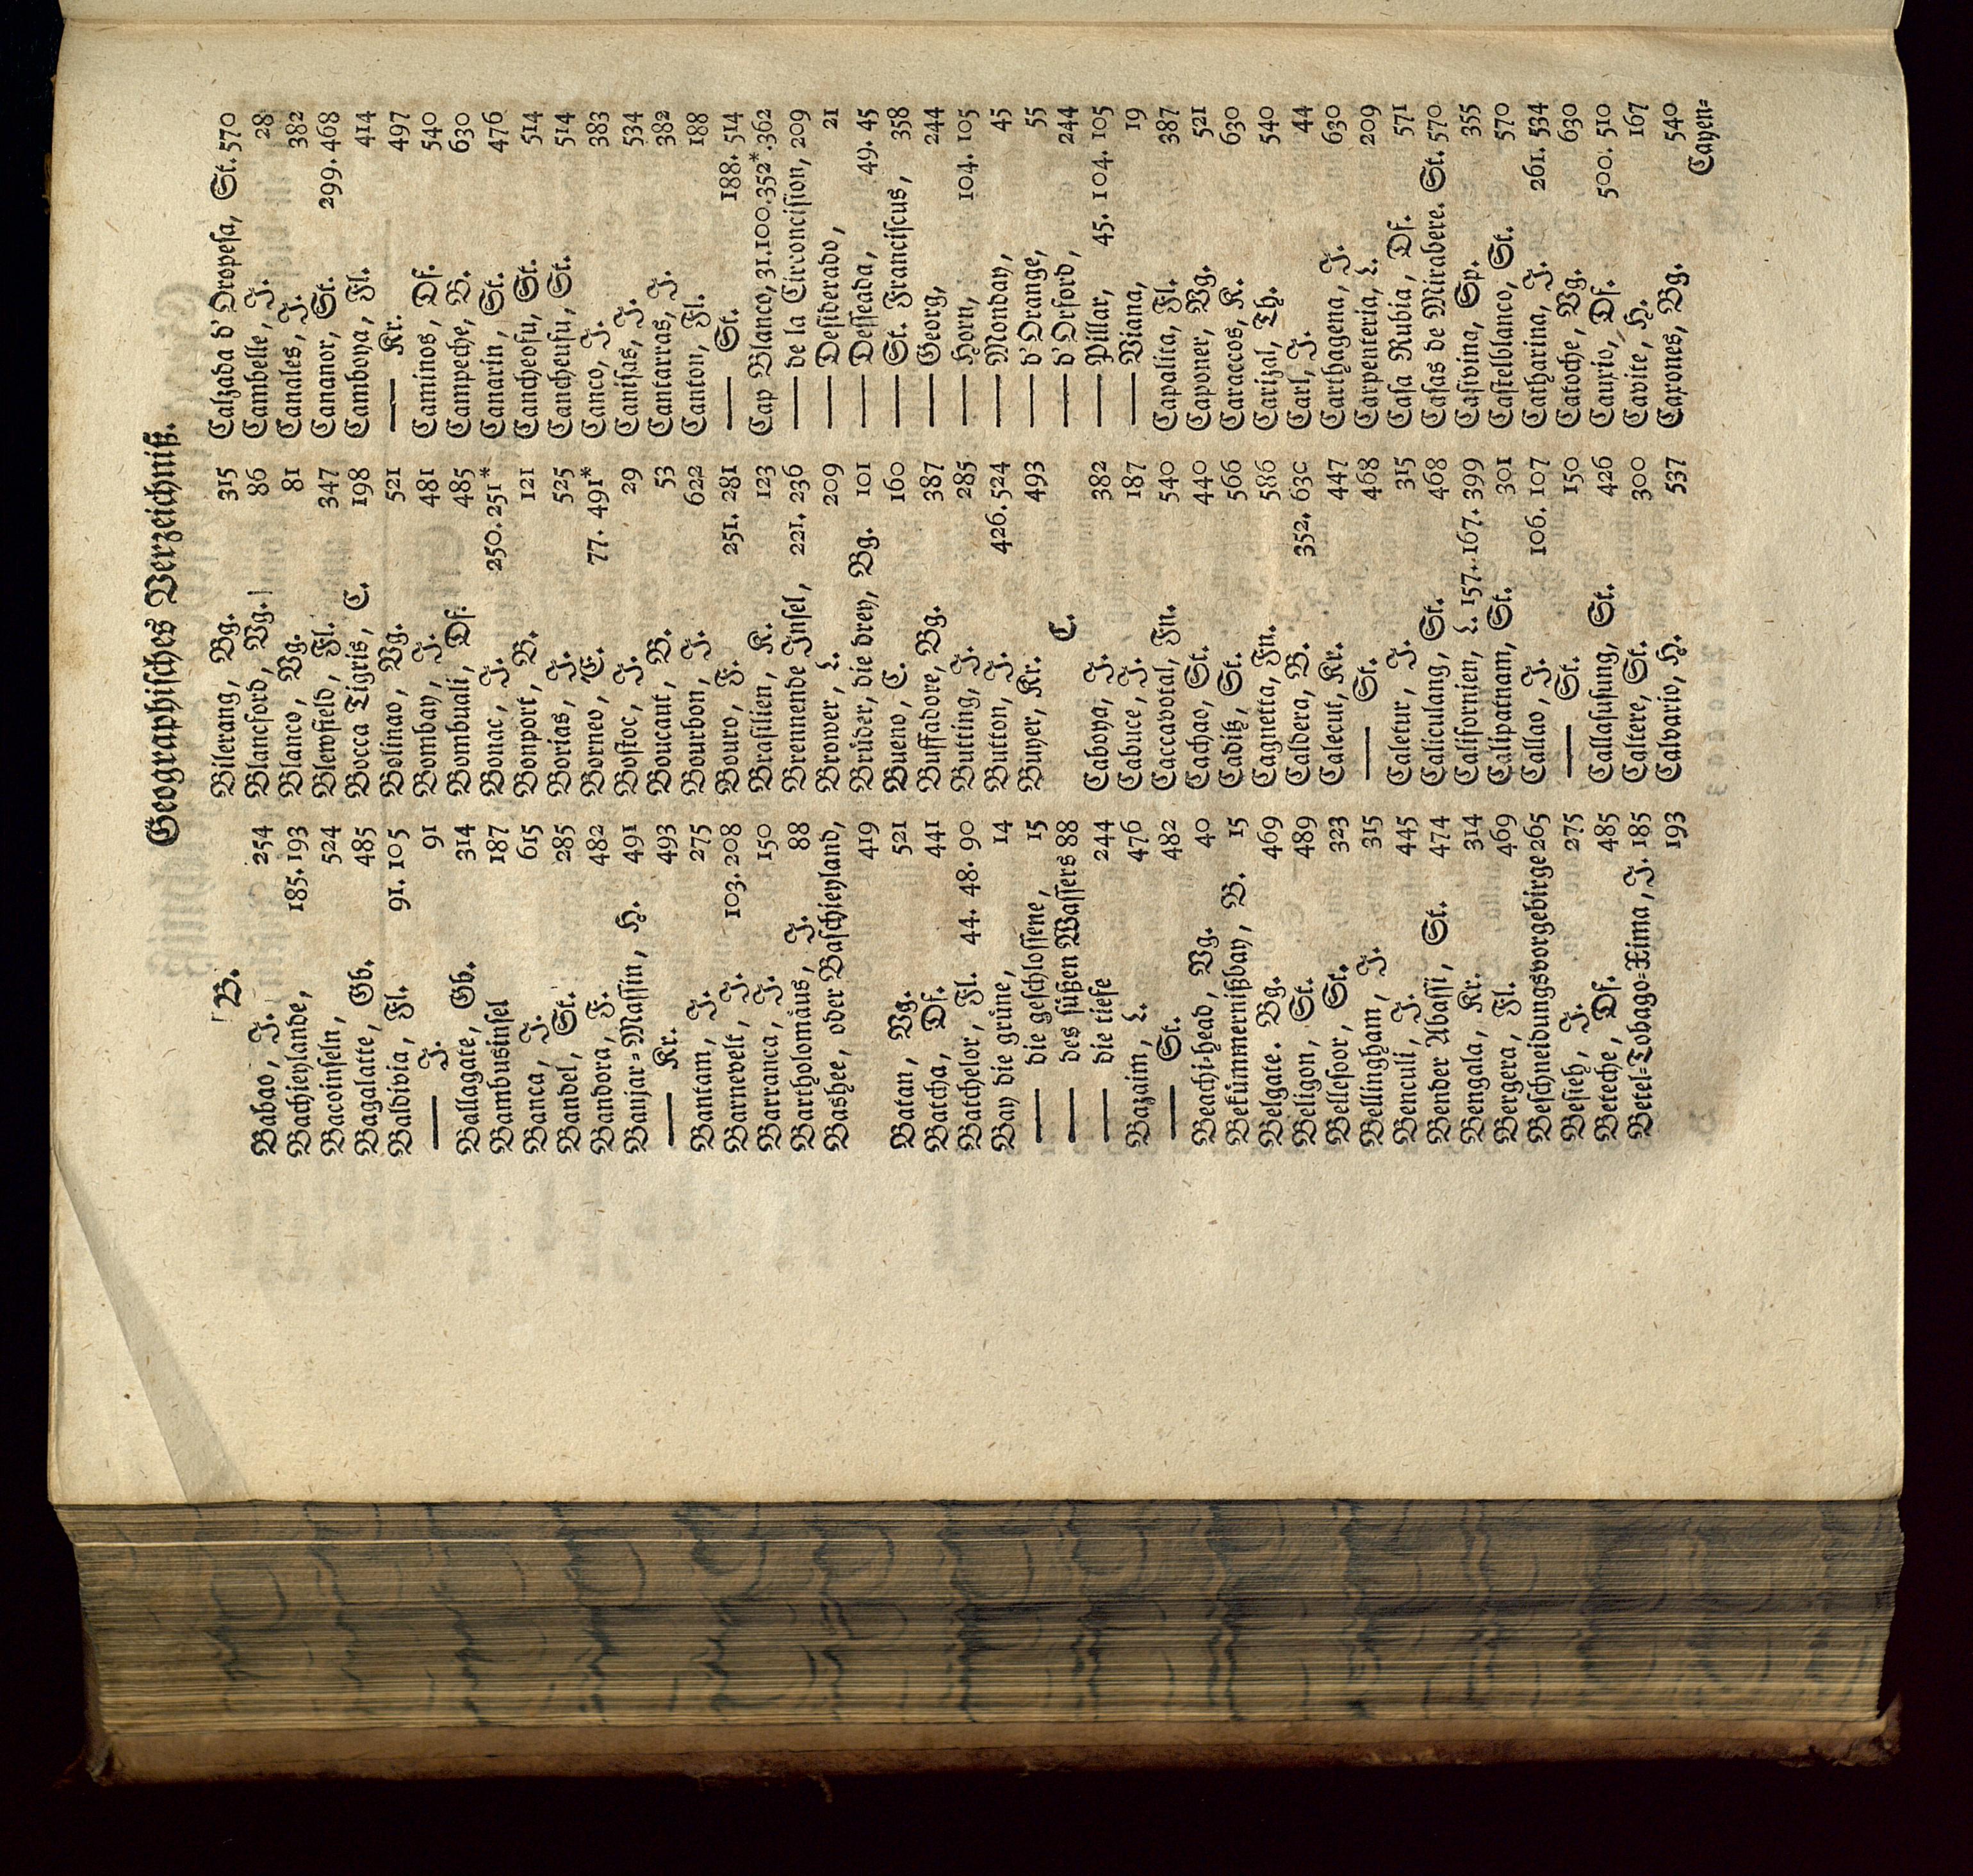 Geographisches Verzeichniß.
B.
Babao, J. 254
Bachieylande, 185. 193
Bacoinseln, 524
Bagalatte, Gb. 485
Baldivia, Fl. 91. 105
—— J. 91
Ballagate, Gb. 314
Bambusinsel 187
Banca, J. 615
Bandel, St. 285
Bandora, F. 482
Banjar-Massin, H. 491
—— Kr. 493
Bantam, J. 275
Barnevelt, J. 103. 208
Barranca, J. 150
Bartholomäus, J. 88
Bashee, oder Baschieyland,
419
Batan, Vg. 521
Batcha, Df. 441
Batchelor, Fl. 44. 48. 90
Bay die grüne, 14
—— die geschlossene, 15
—— des süßen Wassers 88
—— die tiefe 244
Bazaim, L. 476
—— St. 482
Beachi-head, Vg. 40
Bekümmernißbay, B. 15
Belgate. Vg. 469
Beligon, St. 489
Bellesoor, St. 323
Bellingham, J. 315
Benculi, J. 445
Bender Abassi, St. 474
Bengala, Kr. 314
Bergera, Fl. 469
Beschneidungsvorgebirge 265
Besieh, J. 275
Beteche, Df. 485
Betel-Tobago-Xima, J. 185
193
Bilerang, Vg. 315
Blancford, Vg. 86
Blanco, Vg. 81
Blewfield, Fl. 347
Bocca Tigris, C. 198
Bolinao, Vg. 521
Bombay, J. 481
Bombuali, Df. 485
Bonac, J. 250. 251*
Bonport, B. 121
Borias, J. 525
Borneo, E. 77. 491*
Bostoc, J. 29
Boucaut, B. 53
Bourbon, J. 622
Bouro, F. 251. 281
Brasilien, K. 123
Brennende Insel, 221. 236
Brower, L. 209
Brüder, die drey, Vg. 101
Bueno, C. 160
Buffadore, Vg. 387
Butting, J. 285
Button, J. 426. 524
Buyer, Kr. 493
C.
Caboya, J. 382
Cabuce, J. 187
Caccavotal, Fn. 540
Cachao, St. 440
Caditz, St. 566
Cagnetta, Fn. 586
Caldera, B. 352. 630
Calecut, Kr. 447
—— St. 468
Caletur, J. 315
Caliculang, St. 468
Californien, L. 157. 167. 399
Calipatnam, St. 301
Callao, J. 106. 107
—— St. 150
Callasusung, St. 426
Caltere, St. 300
Calvario, H. 537
Calzada d'Oropesa, St. 570
Cambelle, J. 28
Canales, J. 382
Cananor, St. 299. 468
Camboya, Fl. 414
—— Kr. 497
Caminos, Df. 540
Campeche, B. 630
Canarin, St. 476
Cancheofu, St. 514
Cancheufu, St. 514
Canco, J. 383
Canisas, J. 534
Cantarras, J. 382
Canton, Fl. 188
—— St. 188. 514
Cap Blanco, 31. 100. 352*. 362
—— de la Circoncision, 209
—— Desiderado, 21
—— Desseada, 49. 45
—— St. Franciscus, 358
—— Georg, 244
—— Horn, 104. 105
—— Monday, 45
—— d'Orange, 55
—— d'Orford, 244
—— Pillar, 45. 104. 105
—— Viana, 19
Capalita, Fl. 387
Caponer, Vg. 521
Caraccos, K. 630
Carizal, Th. 540
Carl, J. 44
Carthagena, J. 630
Carpenteria, L. 209
Casa Rubia, Df. 571
Casas de Mirabere. St. 570
Casivina, Sp. 355
Castelblanco, St. 570
Catharina, J. 261. 534
Catoche, Vg. 630
Cauxio, Df. 500. 510
Cavite, H. 167
Caxones, Vg. 540
Cayen-